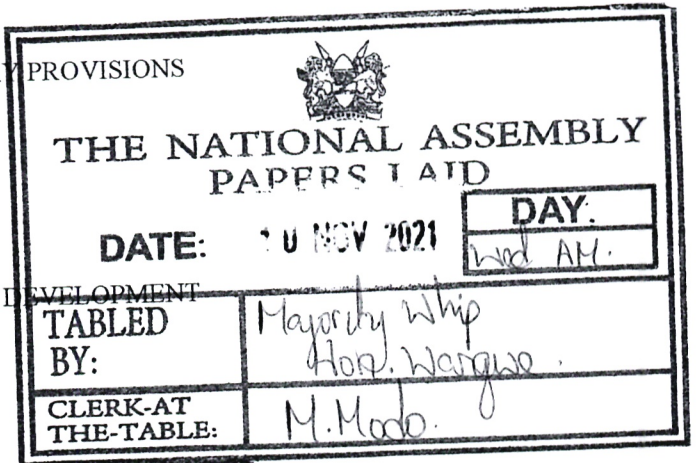 Y PROVISIONS
THE NATIONAL ASSEMBLY
PAPERS LAID
DATE: 10 NOV 2021
DAY:
Wed AM.
DEVELOPMENT
TABLED BY:
Majority Whip
Hon. Wangwe.
CLERK-AT
THE-TABLE:
M. Modo.